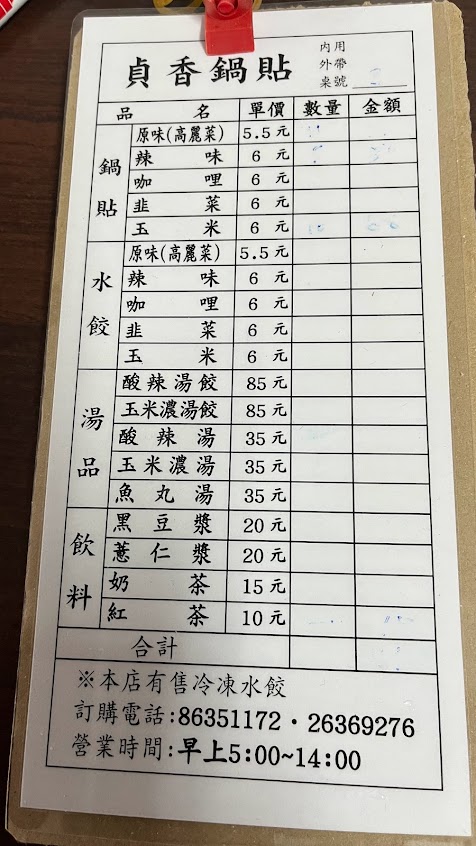 貞香鍋貼
內用
外帶
桌號
品名 單價 數量 金額
鍋貼
原味(高麗菜) 5.5元
辣味 6元
咖哩 6元
韭菜 6元
玉米 6元
水餃
原味(高麗菜) 5.5元
辣味 6元
咖哩 6元
韭菜 6元
玉米 6元
湯品
酸辣湯餃 85元
玉米濃湯餃 85元
酸辣湯 35元
玉米濃湯 35元
魚丸湯 35元
飲料
黑豆漿 20元
薏仁漿 20元
奶茶 15元
紅茶 10元
合計
※本店有售冷凍水餃
訂購電話:86351172·26369276
營業時間:早上5:00~14:00